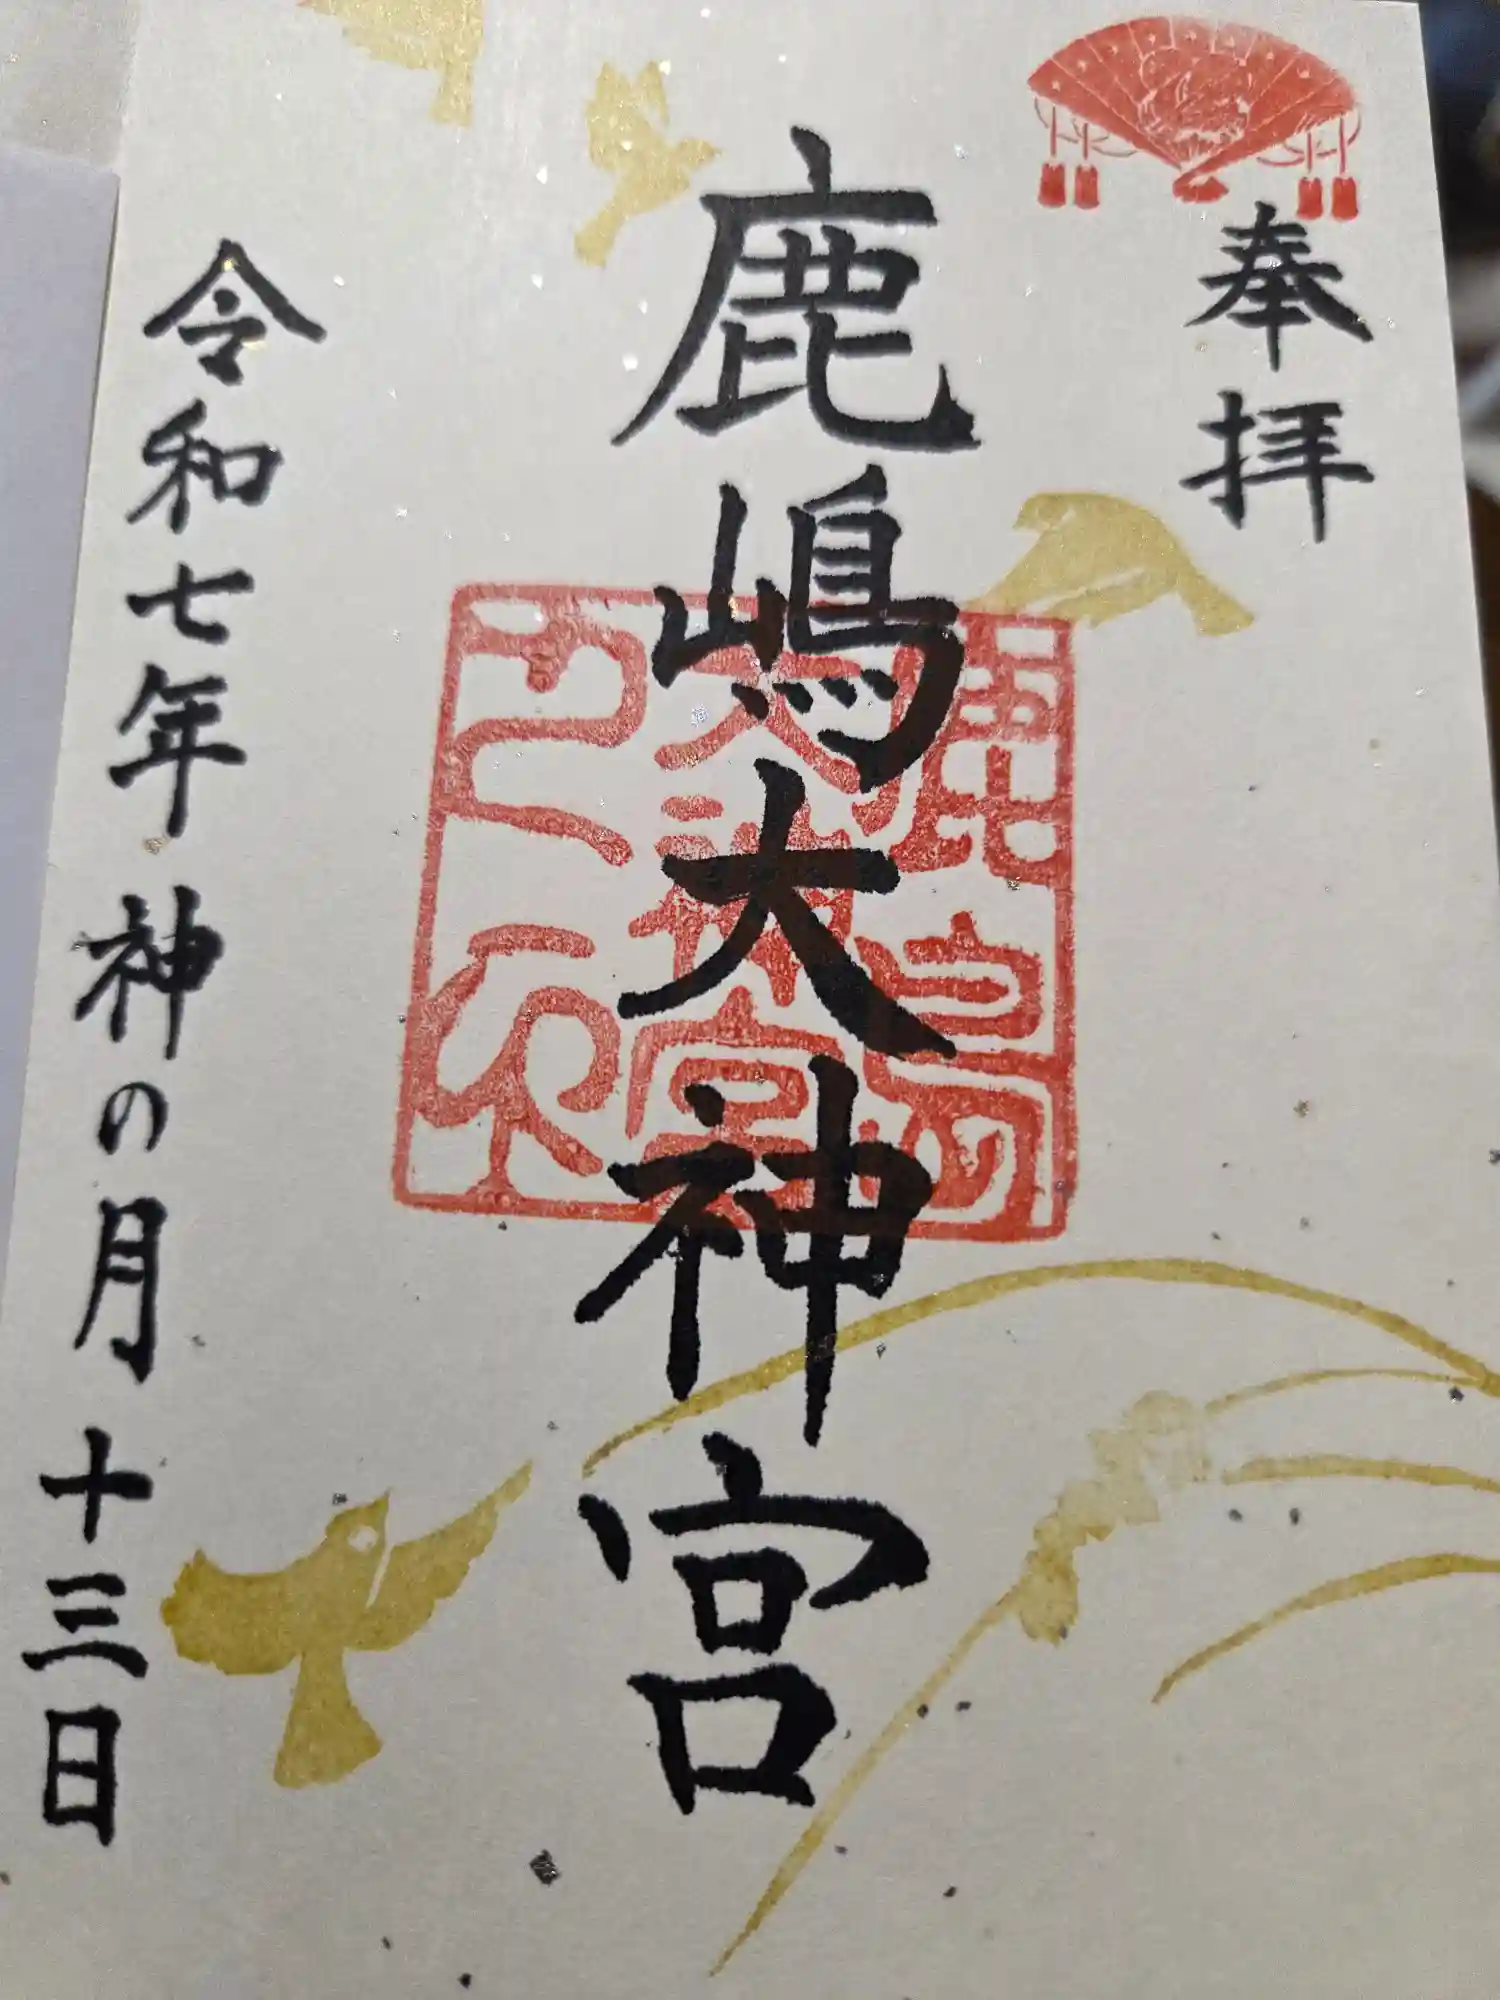 奉拝
鹿嶋大神宮
令和七年 神の月 十三日